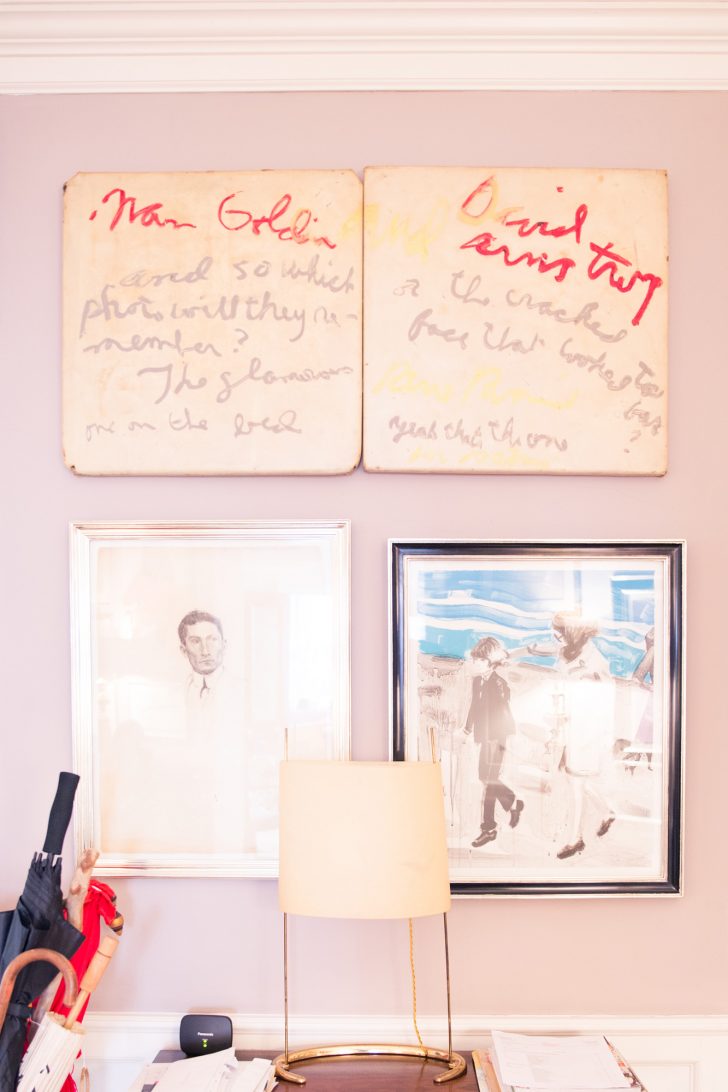 Nan Goldin and
and so which
photo will they re-
member?
The glamorous
one on the bed
David
armstrong
or the cracked
face that looked too
gay?
yeah that the one
Panasonic